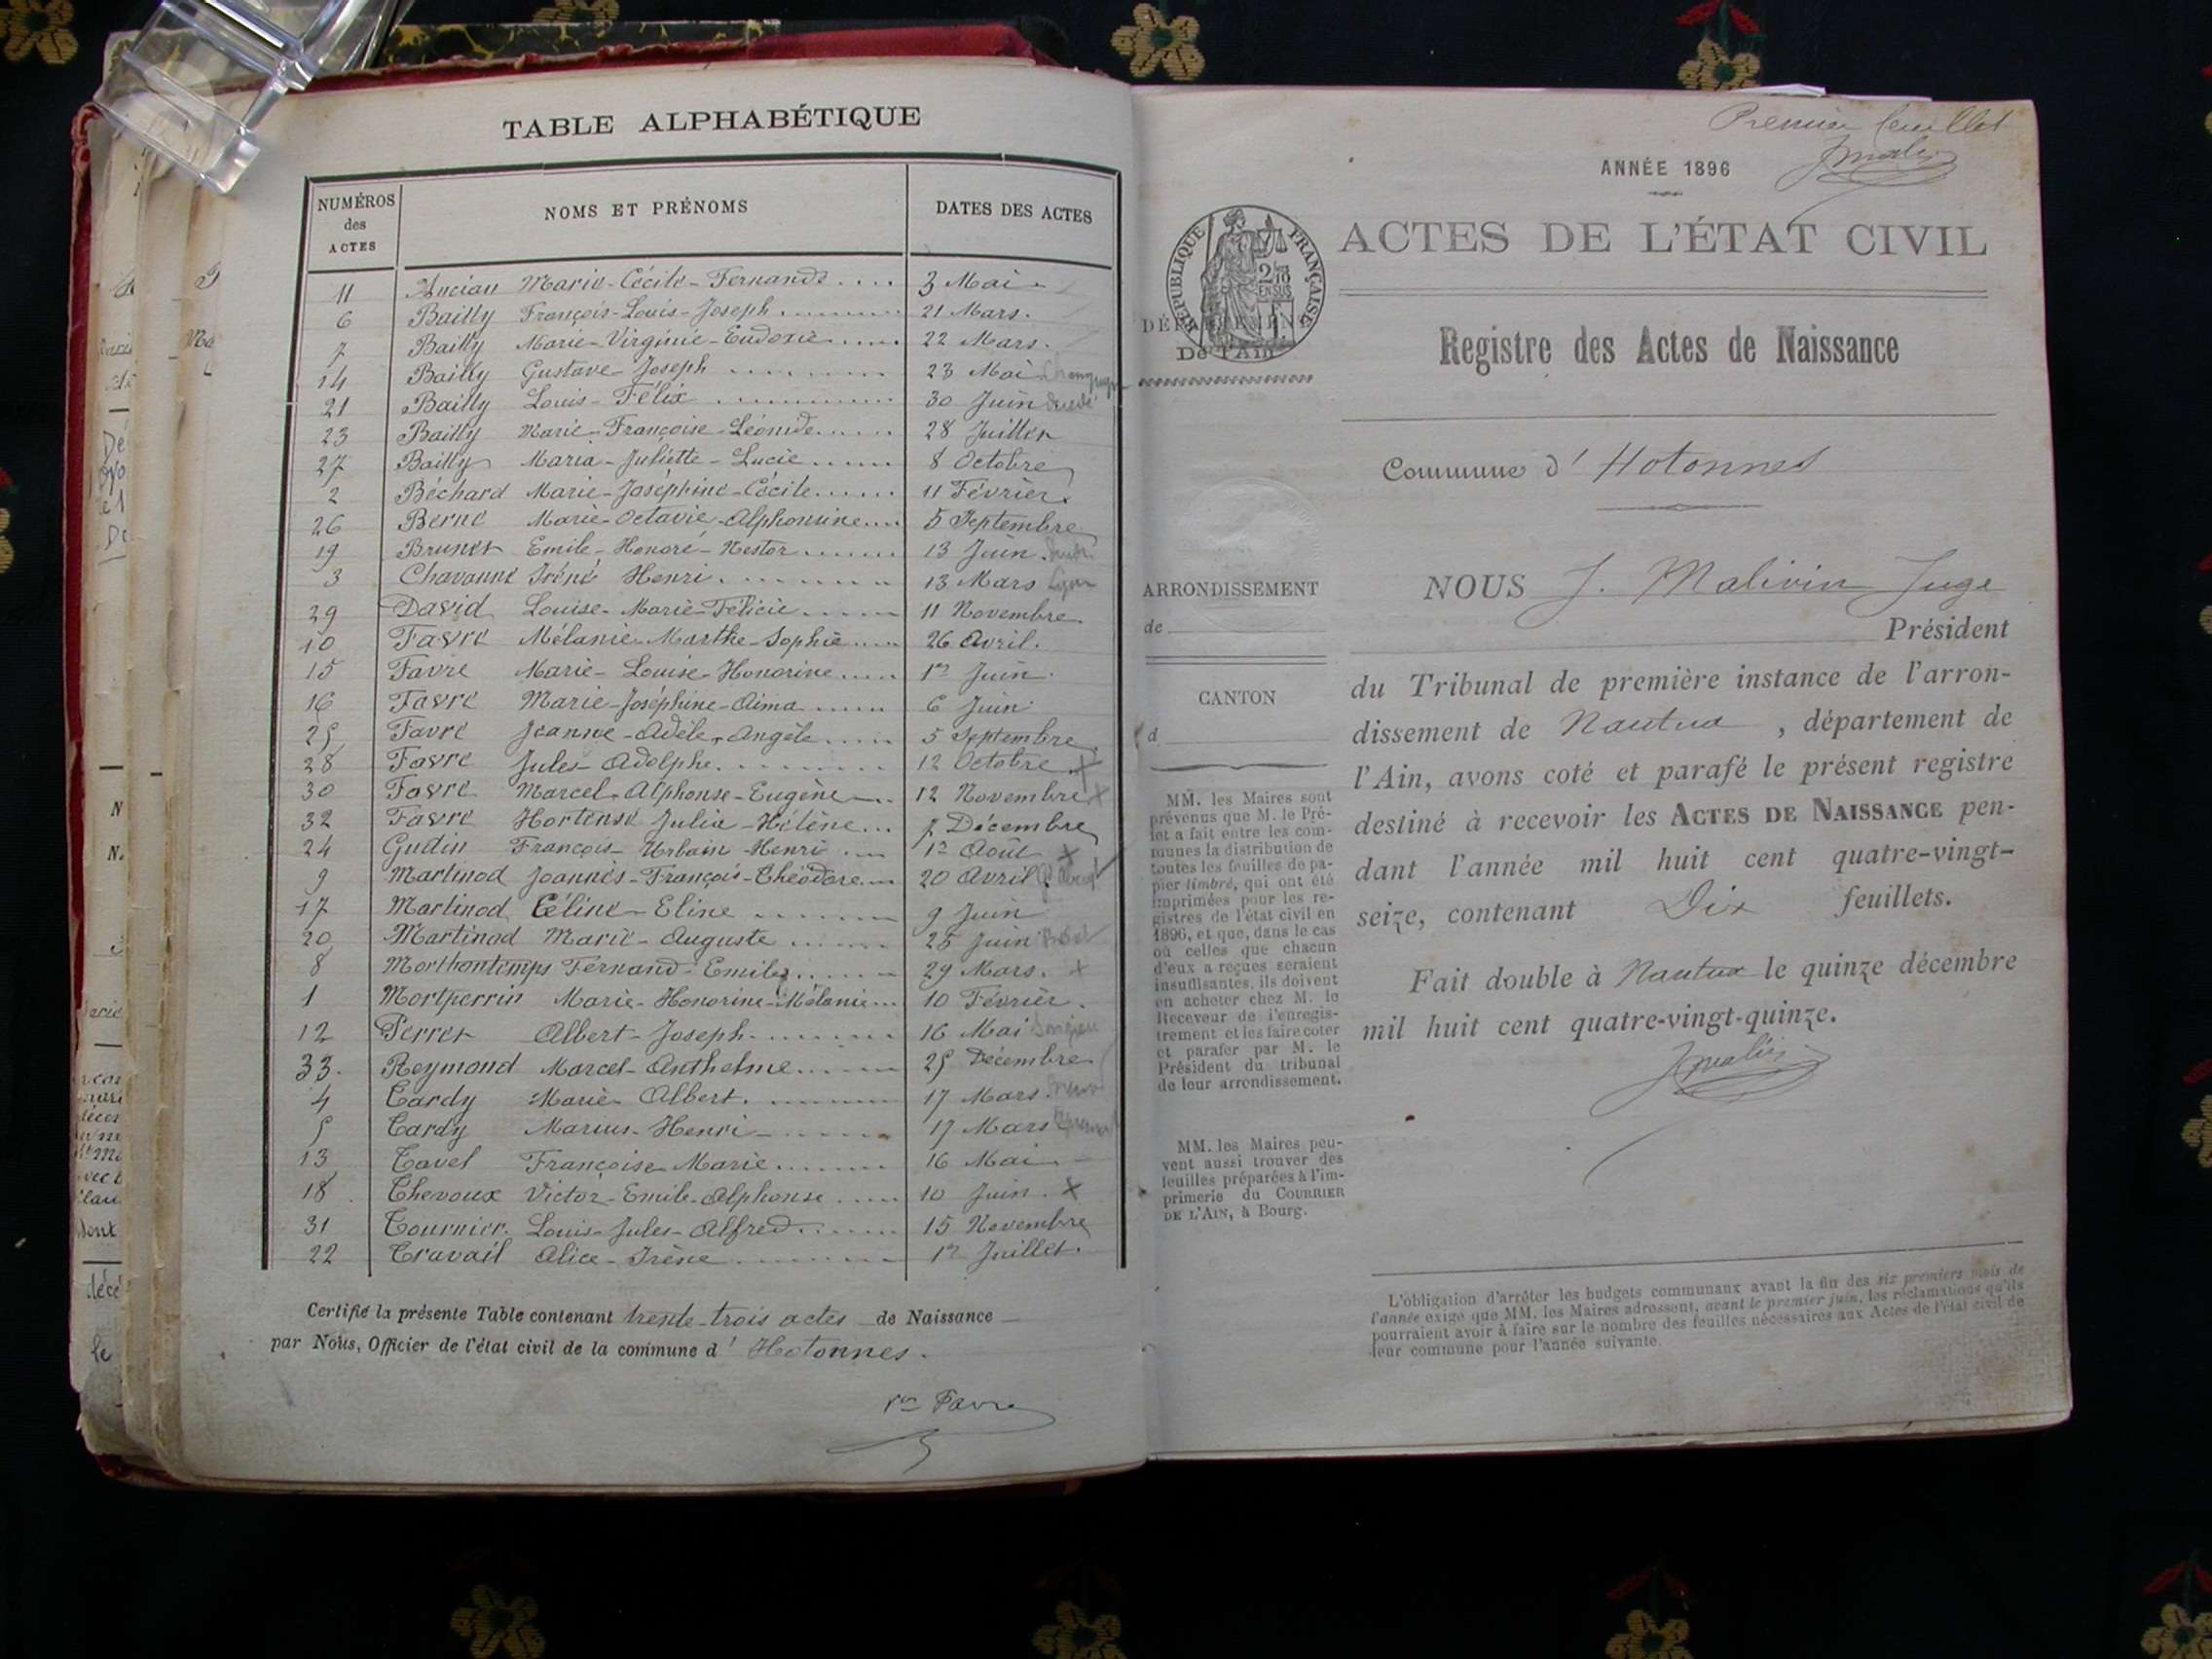 TABLE ALPHABÉTIQUE
NUMÉROS des ACTES NOMS ET PRÉNOMS DATES DES ACTES
11 Ancian Marie-Cécile-Fernande 3 Mai
6 Bailly François-Louis-Joseph 21 Mars.
7 Bailly Marie-Virginie-Eudoxie 22 Mars.
14 Bailly Gustave-Joseph 23 Mai
21 Bailly Louis-Félix 30 Juin
23 Bailly Marie-Françoise-Léonide 28 Juillet
27 Bailly Maria-Juliette-Lucie 8 Octobre
2 Béchard Marie-Joséphine-Cécile 11 Février.
26 Berne Marie-Octavie-Alphonsine 5 Septembre
19 Brunet Emile-Honoré-Nestor 13 Juin
3 Chavanne Iréné Henri 13 Mars Lyon
29 David Louise-Marie-Félicie 11 Novembre
10 Favre Mélanie-Marthe-Sophie 26 Avril.
15 Favre Marie-Louise-Honorine 1er Juin.
16 Favre Marie-Joséphine-Aima 6 Juin
25 Favre Jeanne-Adèle-Angèle 5 Septembre
28 Favre Jules-Adolphe 12 Octobre +
30 Favre Marcel-Alphonse-Eugène 12 Novembre +
32 Favre Hortense Julia-Hélène 7 Décembre
24 Gudin François-Urbain-Henri 1er Août +
9 Martinod Joannès-François-Théodore 20 Avril
17 Martinod Céline-Eline 9 Juin
20 Martinod Marie-Auguste 25 Juin
8 Morthontemps Fernand-Emile 29 Mars. +
1 Mortperrin Marie-Honorine-Mélanie 10 Février.
12 Perret Albert-Joseph 16 Mai
33. Reymond Marcel-Anthelme 25 Décembre
4 Tardy Marie Albert. 17 Mars
5 Tardy Marius-Henri 17 Mars
13 Tavel Françoise Marie 16 Mai
18 Thevoux Victor-Emile-Alphonse 10 Juin. +
31 Tournier. Louis-Jules-Alfred 15 Novembre
22 Travail Alice-Irène 1er Juillet.
Certifié la présente Table contenant trente-trois actes de Naissance
par Nous, Officier de l'état civil de la commune d' Hotonnes.
Favre
Premier feuillet
ANNÉE 1896
ACTES DE L'ÉTAT CIVIL
RÉPUBLIQUE FRANÇAISE
DÉPARTEMENT
De l'Ain
Registre des Actes de Naissance
Commune d' Hotonnes
NOUS J. Malivin Juge
Président
du Tribunal de première instance de l'arron-
dissement de Nantua , département de
l'Ain, avons coté et parafé le présent registre
destiné à recevoir les ACTES DE NAISSANCE pen-
dant l'année mil huit cent quatre-vingt-
seize, contenant Dix feuillets.
Fait double à Nantua le quinze décembre
mil huit cent quatre-vingt-quinze.
ARRONDISSEMENT
de
CANTON
d
MM. les Maires sont
prévenus que M. le Pré-
fet a fait entre les com-
munes la distribution de
toutes les feuilles de pa-
pier timbré, qui ont été
imprimées pour les re-
gistres de l'état civil en
1896, et que, dans le cas
où celles que chacun
d'eux a reçues seraient
insuffisantes, ils doivent
en acheter chez M. le
Receveur de l'enregis-
trement et les faire coter
et parafer par M. le
Président du tribunal
de leur arrondissement.
MM. les Maires peu-
vent aussi trouver des
feuilles préparées à l'im-
primerie du COURRIER
DE L'AIN, à Bourg.
L'obligation d'arrêter les budgets communaux avant la fin des six premiers mois de
l'année exige que MM. les Maires adressent, avant le premier juin, les réclamations qu'ils
pourraient avoir à faire sur le nombre des feuilles nécessaires aux Actes de l'état civil de
leur commune pour l'année suivante.